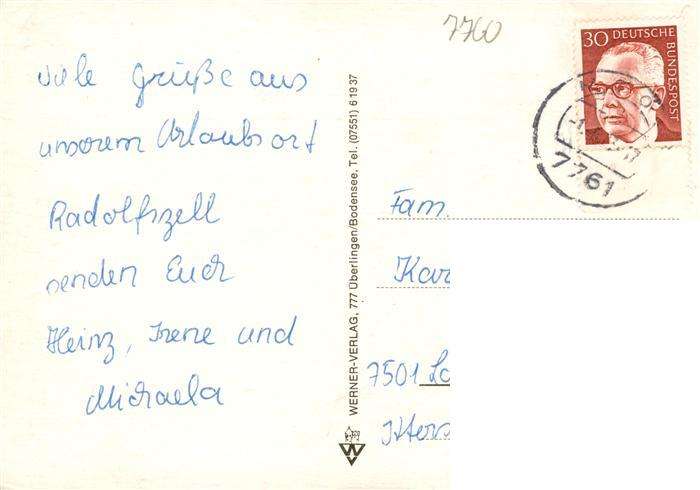 7760
30 DEUTSCHE
BUNDESPOST
7761
viele Grüße aus
unserem Urlaubsort
Radolfszell
senden Euch
Heinz, Irene und
Michaela
WERNER-VERLAG, 777 Überlingen/Bodensee, Tel. (07551) 6 19 37
Fam.
Kar
7501 La
Itters